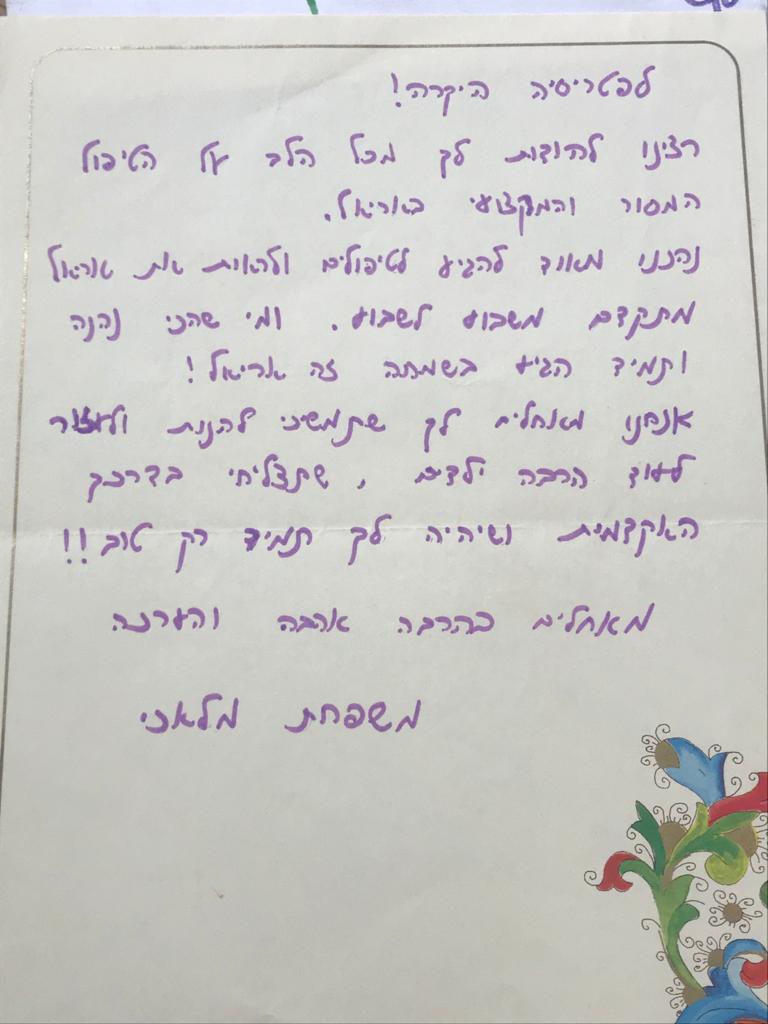 לפטריסיה היקרה!
רצינו להודות לך מכל הלב על הטיפול
המסור והמקצועי באוריאל.
נהננו מאוד להגיע לטיפולים ולראות את אוריאל
מתקדם משבוע לשבוע. ומי שהכי נהנה
ותמיד הגיע בשמחה זה אוריאל!
אנחנו מאחלים לך שתמשיכי להנות ולעזור
לעוד הרבה ילדים, שתצליחי בדרכך
האקדמית ושיהיה לך תמיד רק טוב!!
מאחלים בהרבה אהבה והערכה
משפחת מלאכי